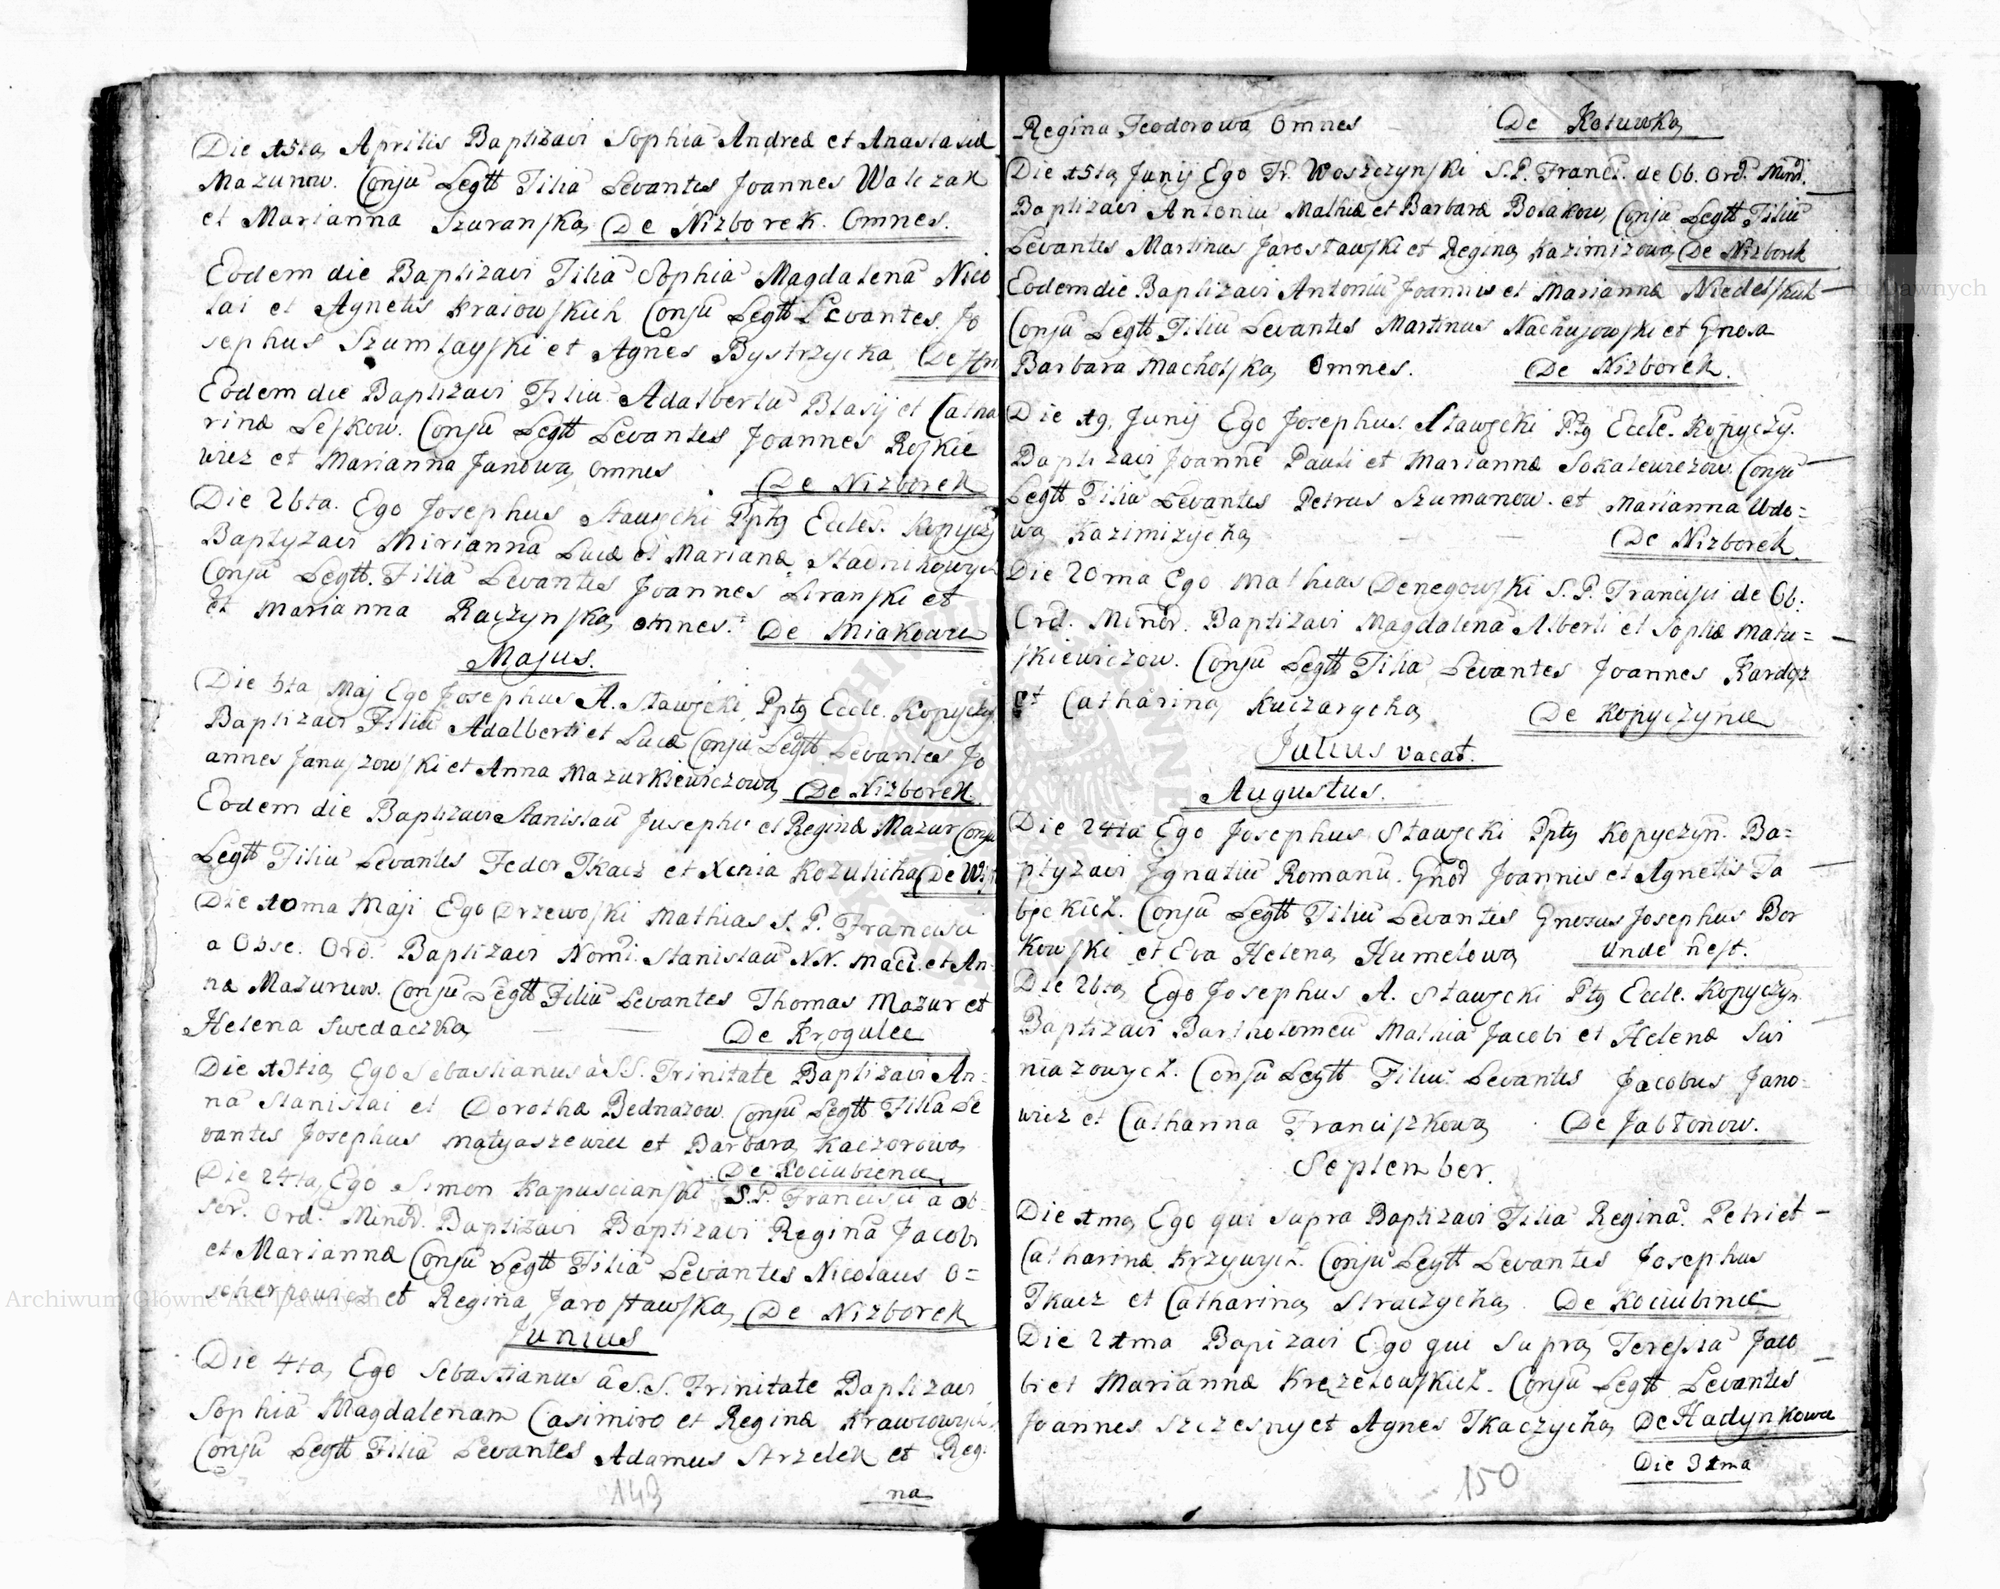 Die 15ta Aprilis Baptizavi Sophiã Andreæ et Anastasiæ
Mazurow. Conju Legtt Filiã Levantes Joannes Walczak
et Marianna Szuranska De Nizborek. Omnes.
Eodem die Baptizavi Filiã Sophiã Magdalenã Nico
lai et Agnetis Kraiowskich Conju Legtt Levantes. Jo
sephus Szumlayski et Agnes Bystrzycka
Eodem die Baptizavi Filiũ Adalbertũ Blasij et Catha
rinæ Leskow. Conju Legtt Levantes Joannes Roskie
wicz et Marianna Janowa omnes De Nizborek
Die 26ta. Ego Josephus Stawecki Pptg Eccles. Kopyczy
Baptyzavi Mirianna Lucæ et Marianæ Stadnikowych
Conju Legtt. Filiã Levantes Joannes Stranski et
et Marianna Raczynska omnes. De Miakowce
Majus.
Die 5ta Maj Ego Josephus A. Stawecki Pptg Eccle. Kopyczy
Baptizavi Filiũ Adalberti et Lucæ Conju Legtt Levantes Jo
annes Januszowski et Anna Mazurkiewiczowa De Nizborek
Eodem die Baptizavi Stanislaũ Jusephi et Reginæ Mazur Conju
Legtt Filiũ Levantes Fedor Tkacz et Xenia Kozulicha
Die 10ma Maji Ego Drzewoski Mathias S. P. Francisci
a Obse. Ord. Baptizavi Nomi Stanislaũ NN. Maci. et An-
næ Mazurow. Conju Legtt Filiũ Levantes Thomas Mazur et
Helena Swedaczka De Krogulec
Die 13tia Ego Sebastianus à SS. Trinitate Baptizavi An-
nã Stanislai et Dorothæ Bednazow. Conju Legtt Filiã Le
vantes Josephus Matyaszewic et Barbara Kaczorowa
De Kociubience
Die 24ta Ego Simon Kapuscianski S.P. Francisci a Ob-
ser. Ord. Minor. Baptizavi Baptizavi Reginã Jacobi
et Mariannæ Conju Legtt Filiã Levantes Nicolaus O=
scherpowicz et Regina Jarosławska De Nizborek
Junius
Die 4ta Ego Sebastianus à S.S. Trinitate Baptizavi
Sophiã Magdalenam Casimiro et Reginæ Krawcowych
Conju Legtt Filiã Levantes Adamus Strzelek et Reg:
na
149
Regina Teodorowa Omnes De Kotuwka
Die 15ta Junij Ego Fr. Woszczynski S.P. Franci. de Ob. Ord. Mind.
Baptizavi Antoniũ Mathiæ et Barbaræ Bolakow Conju Legtt Filiũ
Levantes Martinus Jarosławski et Regina Kazimizowa De Nizborek
Eodem die Baptizavi Antoniũ Joannis et Mariannæ Niedelskich
Conju Legtt. Filiũ Levantes Martinus Nachujowski et Gnosa
Barbara Macholska Omnes. De Nizborek.
Die 19. Junij Ego Josephus Stawecki Ptg Eccle. Kopyczy.
Baptizavi Joannẽ Pauli et Mariannæ Sokalewiczow. Conju
Legtt Filiũ Levantes Petrus Szumanow. et Marianna Wdo=
wa Kazimizycha De Nizborek
Die 20ma Ego Mathias Denegowski S. P. Francisci de Ob:
Ord. Minor. Baptizavi Magdalenã Alberti et Sophiæ Matu=
skiewiczow. Conju Legtt Filiã Levantes Joannes Kardasz
et Catharina Kuczarycha De Kopyczynce
Julius vacat.
Augustus.
Die 24ta Ego Josephus Stawecki Pptg Kopyczyn. Ba=
ptyzavi Jgnatiũ Romanũ. Gnod Joannis et Agnetis Ja
bec kich. Conju Legtt Filiũ Levantes Gnosus Josephus Bor
kowski et Eva Helena Humelowa Unde hest.
Die 26ta Ego Josephus A. Stawecki Ptg Eccle. Kopyczyn.
Baptizavi Bartholomeũ Mathiã Jacobi et Helenæ Swi
niazowych. Conju Legtt Filiũ Levantes Jacobus Jano-
wicz et Catharina Franciszkowa De Jabłonow.
September.
Die 1ma Ego qui supra Baptizavi Filiã Reginã. Petri et
Catharinæ Krzywych. Conju Legtt Levantes Josephus
Tkacz et Catharina Straczycha De Kociubince
Die 21ma Bapizavi Ego qui Supra Teressiã Jaco
bi et Mariannæ Krezelowskich. Conju Legtt Levantes
Joannes Szczesny et Agnes Tkaczycha De Hadynkowce
Die 31ma
150
Archiwum Główne Akt Dawnych